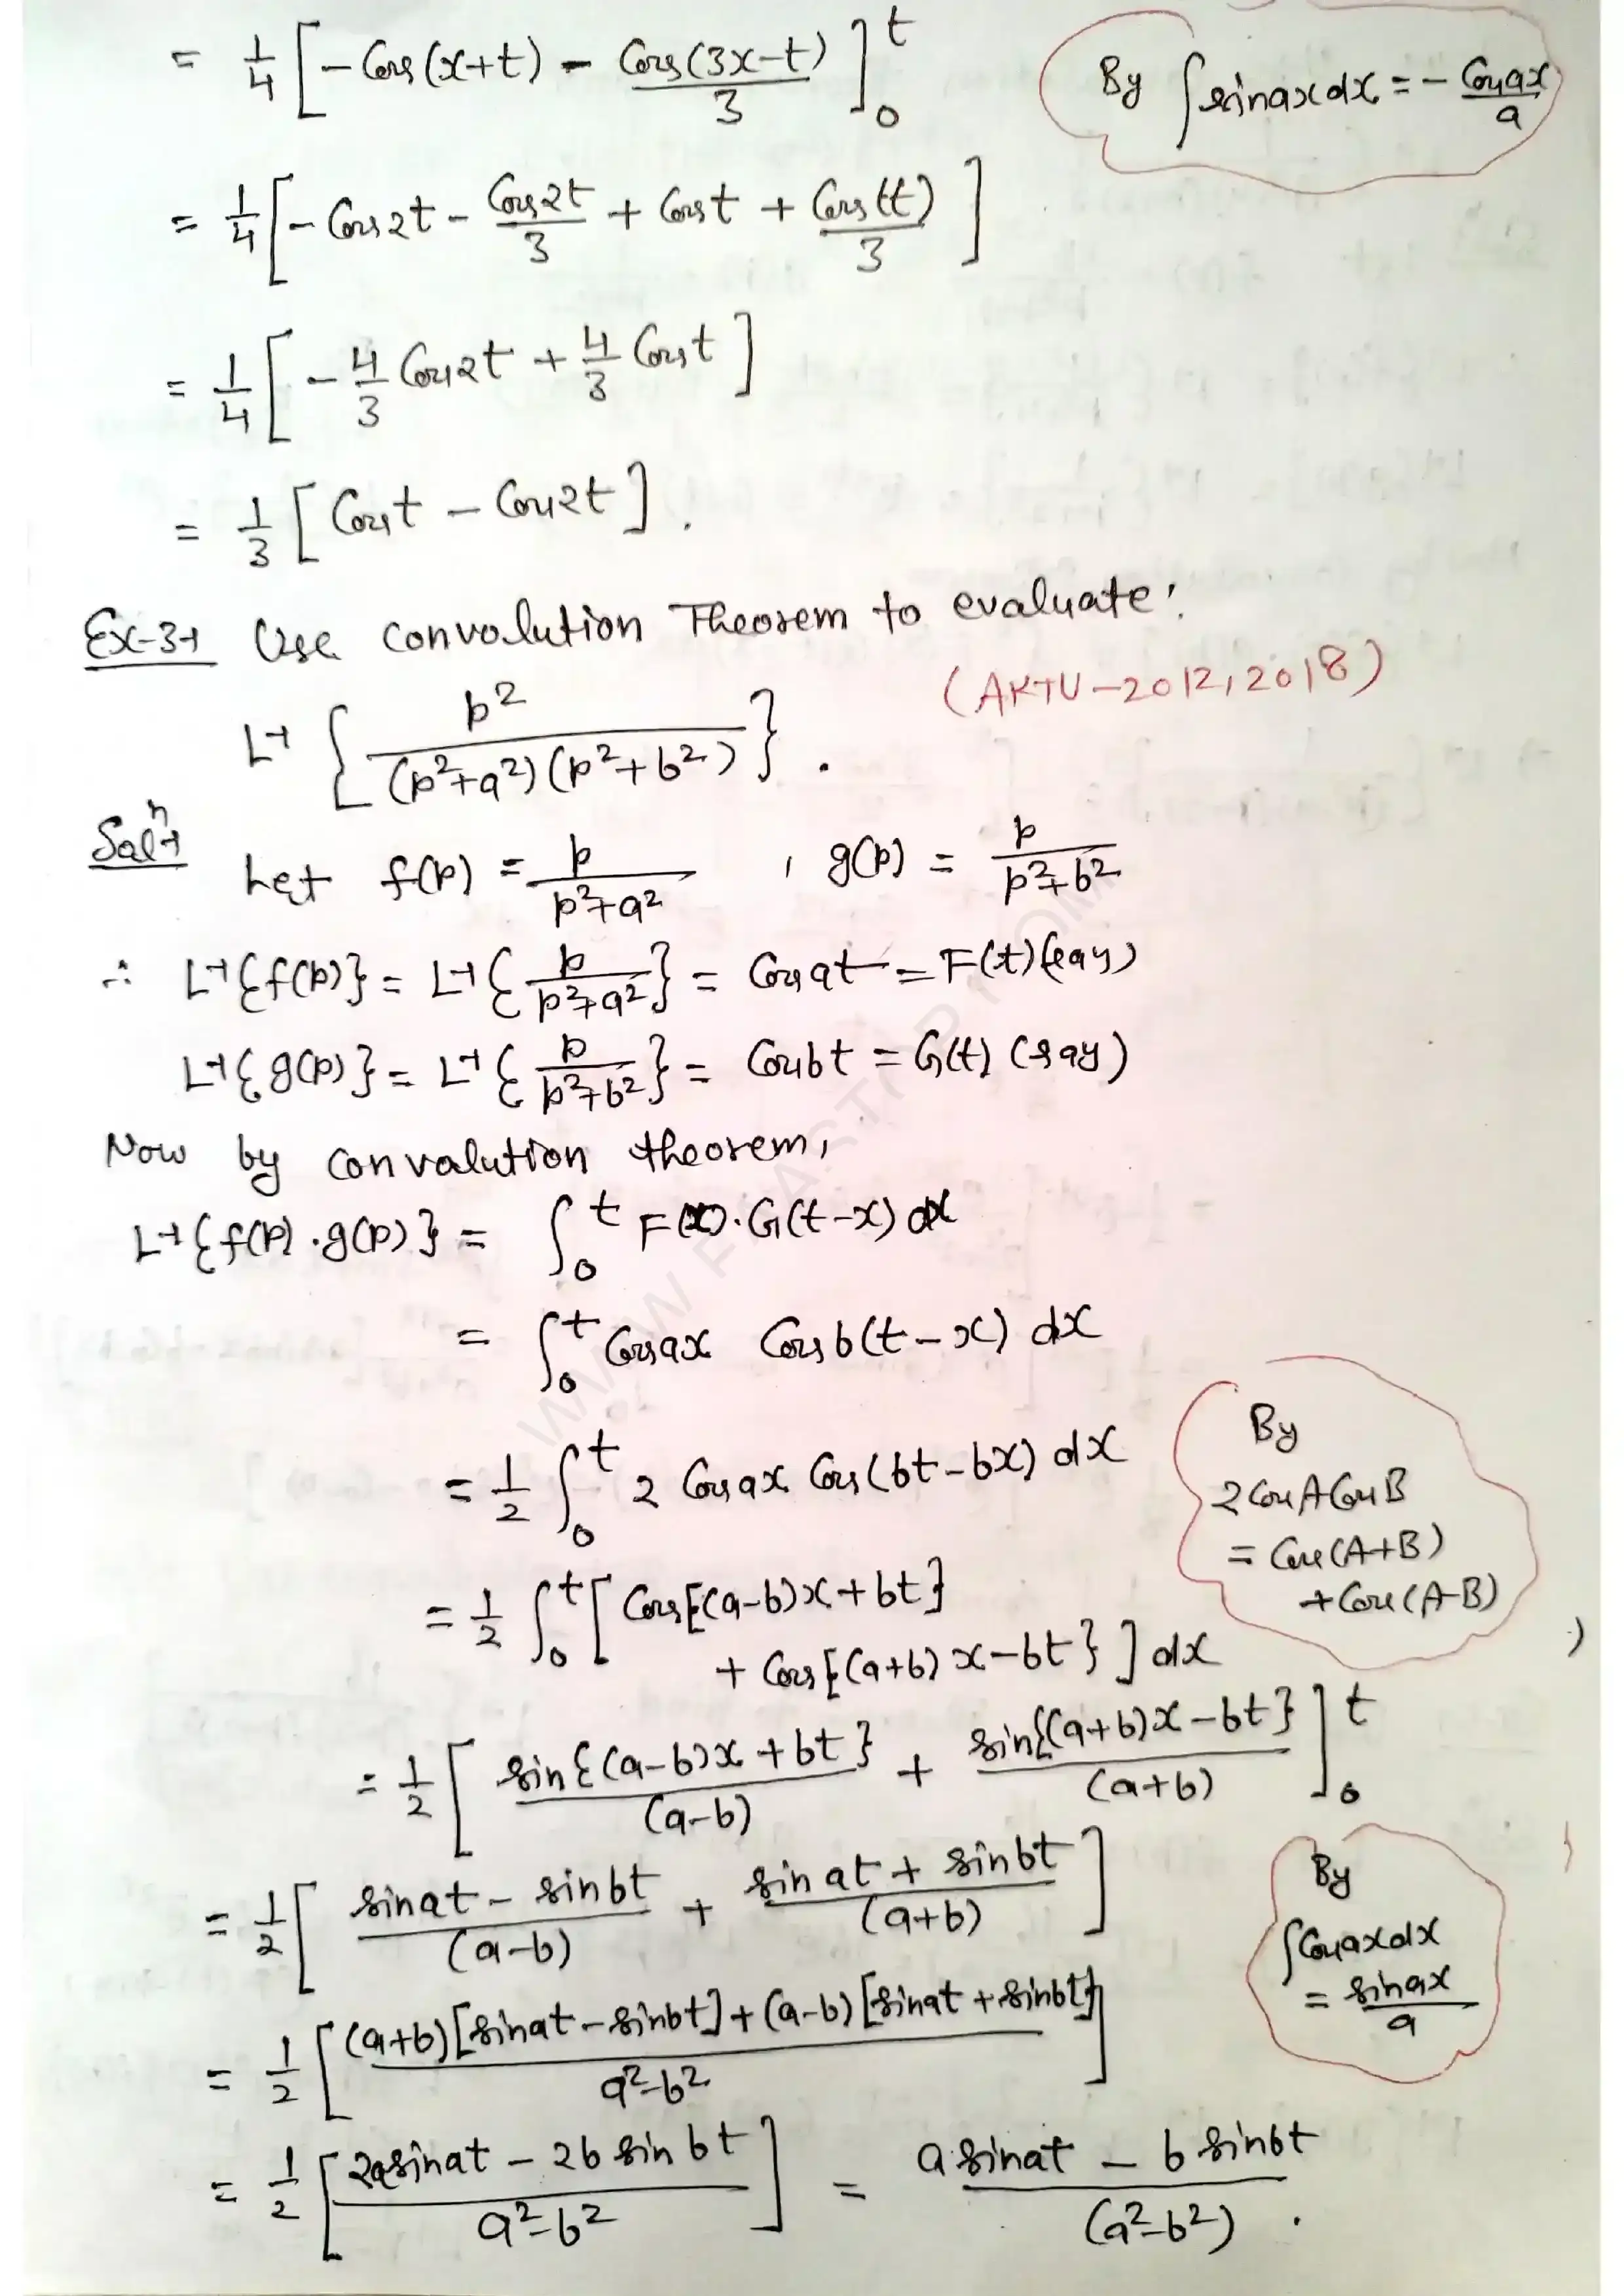 = 1/4 [ -Cos(x+t) - Cos(3x-t)/3 ]₀ᵗ
By ∫sinax dx = - Cosax/a
= 1/4 [ -Cos2t - Cos2t/3 + Cost + Cos(t)/3 ]
= 1/4 [ -4/3 Cos2t + 4/3 Cost ]
= 1/3 [ Cost - Cos2t ].
Ex-3→ Use convolution Theorem to evaluate:
(AKTU-2012, 2018)
L⁻¹ { p²/((p²+a²)(p²+b²)) }.
Solⁿ→
Let f(p) = p/(p²+a²) , g(p) = p/(p²+b²)
∴ L⁻¹{f(p)} = L⁻¹{ p/(p²+a²) } = Cosat = F(t) (say)
L⁻¹{g(p)} = L⁻¹{ p/(p²+b²) } = Cosbt = G(t) (say)
Now by convalution theorem,
L⁻¹{f(p).g(p)} = ∫₀ᵗ F(x).G(t-x) dx
= ∫₀ᵗ Cosax Cosb(t-x) dx
= 1/2 ∫₀ᵗ 2 Cosax Cos(bt-bx) dx
By
2CosACosB
= Cos(A+B)
+Cos(A-B)
= 1/2 ∫₀ᵗ [ Cos{(a-b)x+bt}
+ Cos{(a+b)x-bt} ] dx
= 1/2 [ sin{(a-b)x+bt}/(a-b) + sin{(a+b)x-bt}/(a+b) ]₀ᵗ
= 1/2 [ (sinat - sinbt)/(a-b) + (sinat + sinbt)/(a+b) ]
By
∫Cosax dx
= sinax/a
= 1/2 [ ((a+b)[sinat-sinbt]+(a-b)[sinat+sinbt])/(a²-b²) ]
= 1/2 [ (2asinat - 2b sinbt)/(a²-b²) ] = (a sinat - b sinbt)/(a²-b²) .